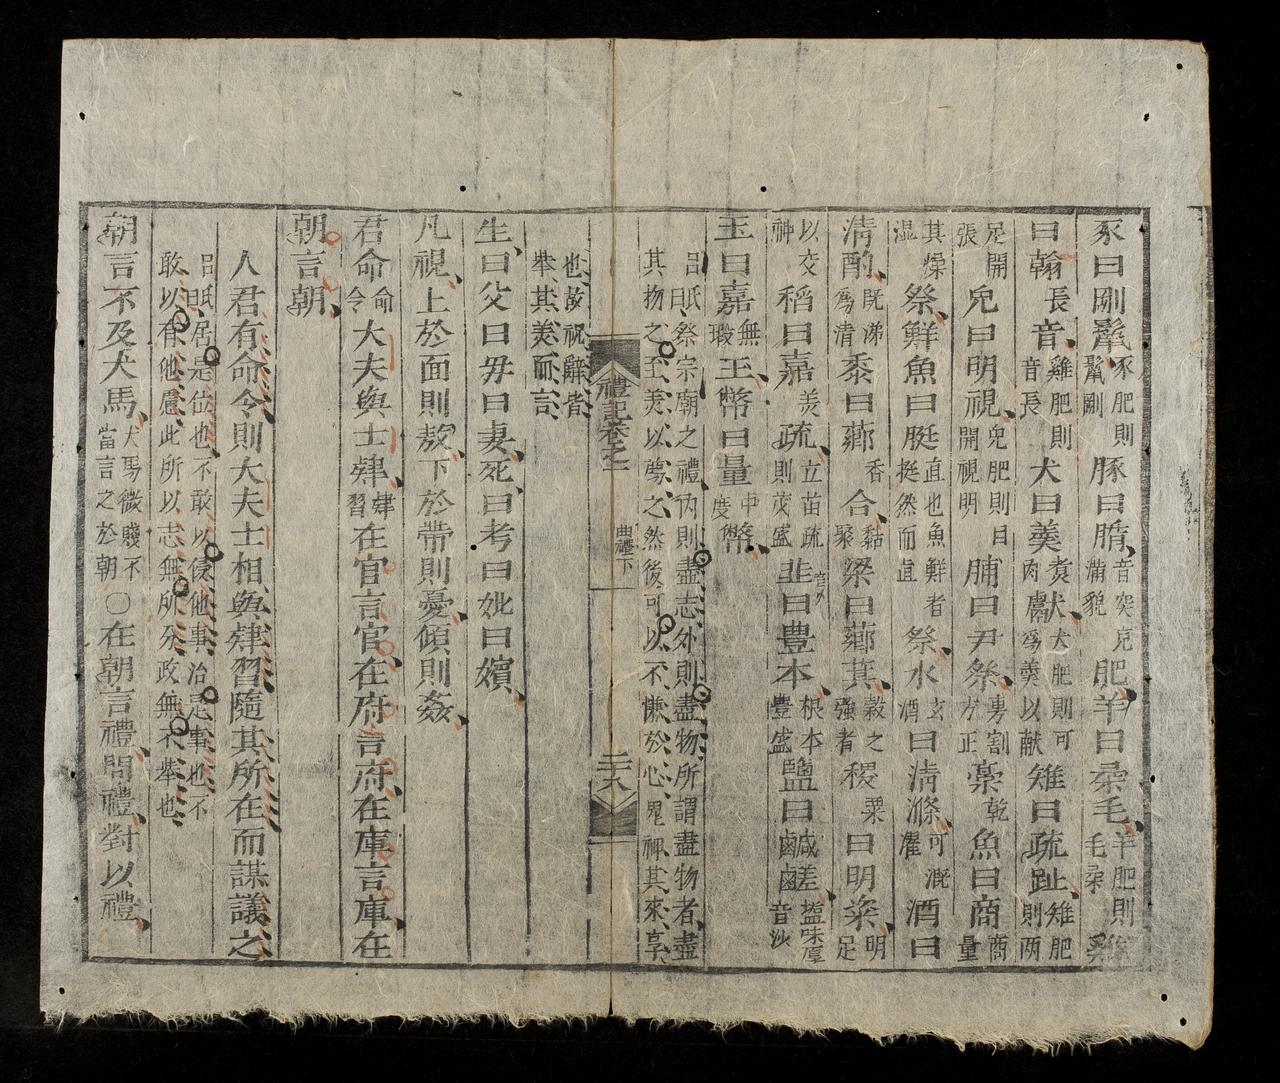 豕曰剛鬣豕肥則鬣剛豚曰腯音突充滿貌肥羊曰柔毛羊肥則毛柔雞
曰翰長音雞肥則音長犬曰羹煑肉獻犬肥則可爲羹以献雉曰疏趾雉肥則两
足開張兔曰明視兔肥則目開視明脯曰尹祭專割方正槀乾魚曰商商量
其燥湿祭鮮魚曰脡直也魚鮮者挺然而直祭水玄酒曰清滌可漑濯酒曰
清酌既泲爲清黍曰薌香合黏聚梁曰薌萁穀之強者稷粟曰明粢明足
以交神稻曰嘉美疏立苗疏則茂盛韭音九曰豊本根本豊盛鹽曰鹹鹺塩味厚音沙
玉曰嘉無瑕玉幣曰量中度幣
呂氏曰祭宗廟之禮内則盡志外則盡物所謂盡物者盡
其物之至美以薦之然後可以不慊於心鬼神其來享
也故祝辭者
舉其美而言
禮記卷之一
典禮下
二十八
生曰父曰母曰妻死曰考曰妣曰嬪
凡視上於面則敖下於帶則憂傾則姦
君命命令大夫與士肄肄習在官言官在府言府在庫言庫在
朝言朝
人君有命令則大夫士相與肄習隨其所在而謀議之
呂氏曰居是位也不敢以侵他事治是事也不
敢以有他慮此所以志無所分政無不舉也
朝言不及犬馬犬馬微賤不當言之於朝○在朝言禮問禮對以禮